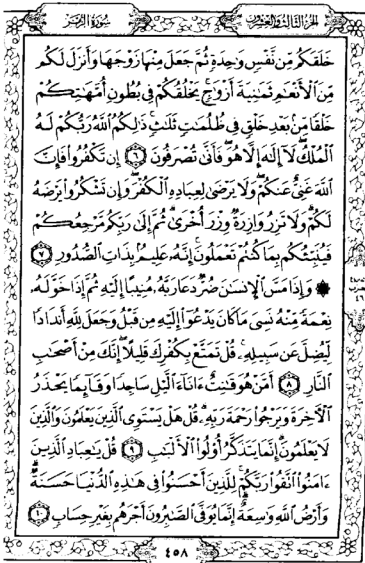 الجزء الثالث والعشرون
سورة الزمر
خَلَقَكُم مِّن نَّفْسٍ وَٰحِدَةٍ ثُمَّ جَعَلَ مِنْهَا زَوْجَهَا وَأَنزَلَ لَكُم
مِّنَ ٱلْأَنْعَٰمِ ثَمَٰنِيَةَ أَزْوَٰجٍ يَخْلُقُكُمْ فِى بُطُونِ أُمَّهَٰتِكُمْ
خَلْقًا مِّنۢ بَعْدِ خَلْقٍ فِى ظُلُمَٰتٍ ثَلَٰثٍ ذَٰلِكُمُ ٱللَّهُ رَبُّكُمْ لَهُ
ٱلْمُلْكُ لَآ إِلَٰهَ إِلَّا هُوَ فَأَنَّىٰ تُصْرَفُونَ ٦ إِن تَكْفُرُوا۟ فَإِنَّ
ٱللَّهَ غَنِىٌّ عَنكُمْ وَلَا يَرْضَىٰ لِعِبَادِهِ ٱلْكُفْرَ وَإِن تَشْكُرُوا۟ يَرْضَهُ
لَكُمْ وَلَا تَزِرُ وَازِرَةٌ وِزْرَ أُخْرَىٰ ثُمَّ إِلَىٰ رَبِّكُم مَّرْجِعُكُمْ
فَيُنَبِّئُكُم بِمَا كُنتُمْ تَعْمَلُونَ إِنَّهُۥ عَلِيمٌۢ بِذَاتِ ٱلصُّدُورِ ٧
۞ وَإِذَا مَسَّ ٱلْإِنسَٰنَ ضُرٌّ دَعَا رَبَّهُۥ مُنِيبًا إِلَيْهِ ثُمَّ إِذَا خَوَّلَهُۥ
نِعْمَةً مِّنْهُ نَسِىَ مَا كَانَ يَدْعُوٓا۟ إِلَيْهِ مِن قَبْلُ وَجَعَلَ لِلَّهِ أَندَادًا
لِّيُضِلَّ عَن سَبِيلِهِۦ قُلْ تَمَتَّعْ بِكُفْرِكَ قَلِيلًا إِنَّكَ مِنْ أَصْحَٰبِ
ٱلنَّارِ ٨ أَمَّنْ هُوَ قَٰنِتٌ ءَانَآءَ ٱلَّيْلِ سَاجِدًا وَقَآئِمًا يَحْذَرُ
ٱلْءَاخِرَةَ وَيَرْجُوا۟ رَحْمَةَ رَبِّهِۦ قُلْ هَلْ يَسْتَوِى ٱلَّذِينَ يَعْلَمُونَ وَٱلَّذِينَ
لَا يَعْلَمُونَ إِنَّمَا يَتَذَكَّرُ أُو۟لُوا۟ ٱلْأَلْبَٰبِ ٩ قُلْ يَٰعِبَادِ ٱلَّذِينَ
ءَامَنُوا۟ ٱتَّقُوا۟ رَبَّكُمْ لِلَّذِينَ أَحْسَنُوا۟ فِى هَٰذِهِ ٱلدُّنْيَا حَسَنَةٌ
وَأَرْضُ ٱللَّهِ وَٰسِعَةٌ إِنَّمَا يُوَفَّى ٱلصَّٰبِرُونَ أَجْرَهُم بِغَيْرِ حِسَابٍ ١٠
٤٥٨